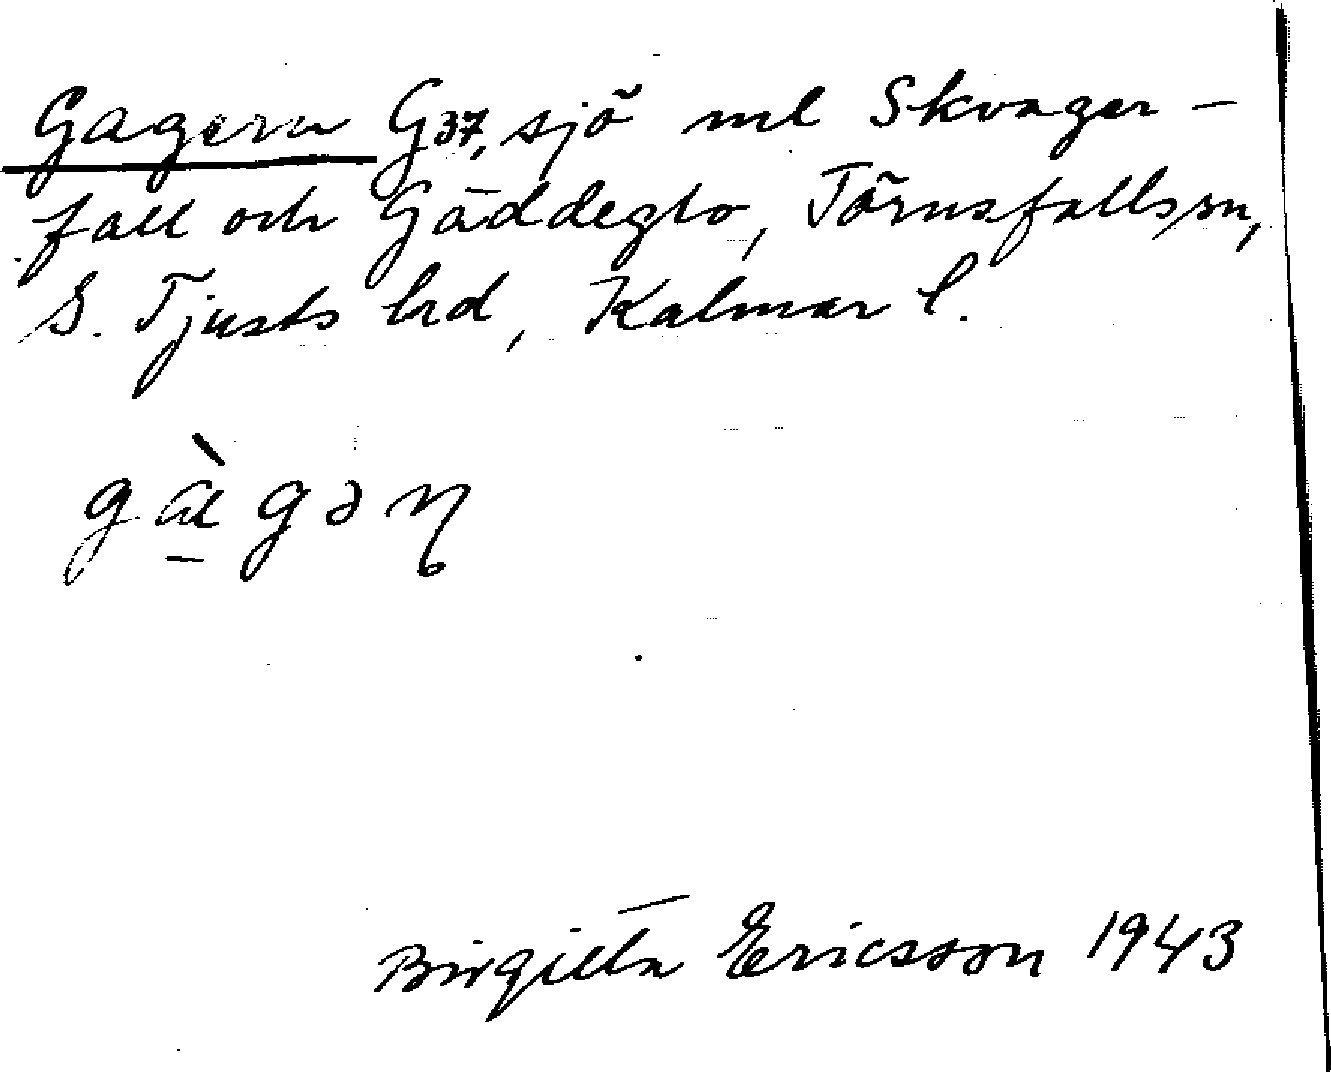 Gagern G37, sjö ml Skvager-
fall och Gäddeglo, Törnsfalls sn,
S. Tjusts hd, Kalmar l.
gàgəɳ
Birgitta Ericsson 1943